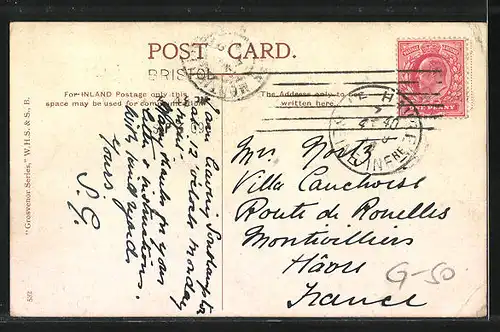 POST CARD.
BRISTOL
For INLAND Postage only this
space may be used for communication
The Address only to be
written here.
I am leaving Southampton
at 12 o'clock Monday
night.
Many thanks for your
letter & instructions.
With kind regards
Yours
S.G.
Mrs Nortz
Villa Cauchoise
Route de Rouelles
Montivilliers
Hâvre
France
G-50
ONE PENNY
"Grosvenor Series," W.H.S. & S., B.
532